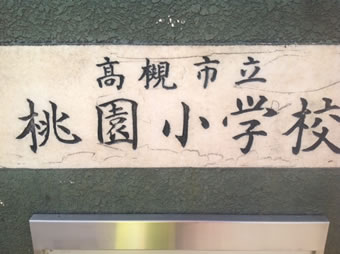 高槻市立
桃園小学校